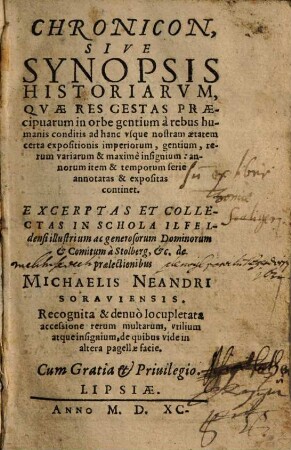 CHRONICON,
SIVE
SYNOPSIS
HISTORIARVM,
QVÆ RES GESTAS PRÆ-
cipuarum in orbe gentium à rebus hu-
manis conditis ad hanc vsque nostram ætatem
certa expositionis imperiorum, gentium, re-
rum variarum & maximè insignium: an-
norum item & temporum serie
annotatas & expositas
continet.
EXCERPTAS ET COLLE-
CTAS IN SCHOLA ILFEL-
densi illustrium ac generosorum Dominorum
& Comitum à Stolberg, &c. de
prælectionibus
MICHAELIS NEANDRI
SORAVIENSIS.
Recognita & denuò locupletata
accessione rerum multarum, vtilium
atque insignium, de quibus vide in
altera pagellæ facie.
Cum Gratia & Priuilegio.
LIPSIÆ.
ANNO M. D. XC.